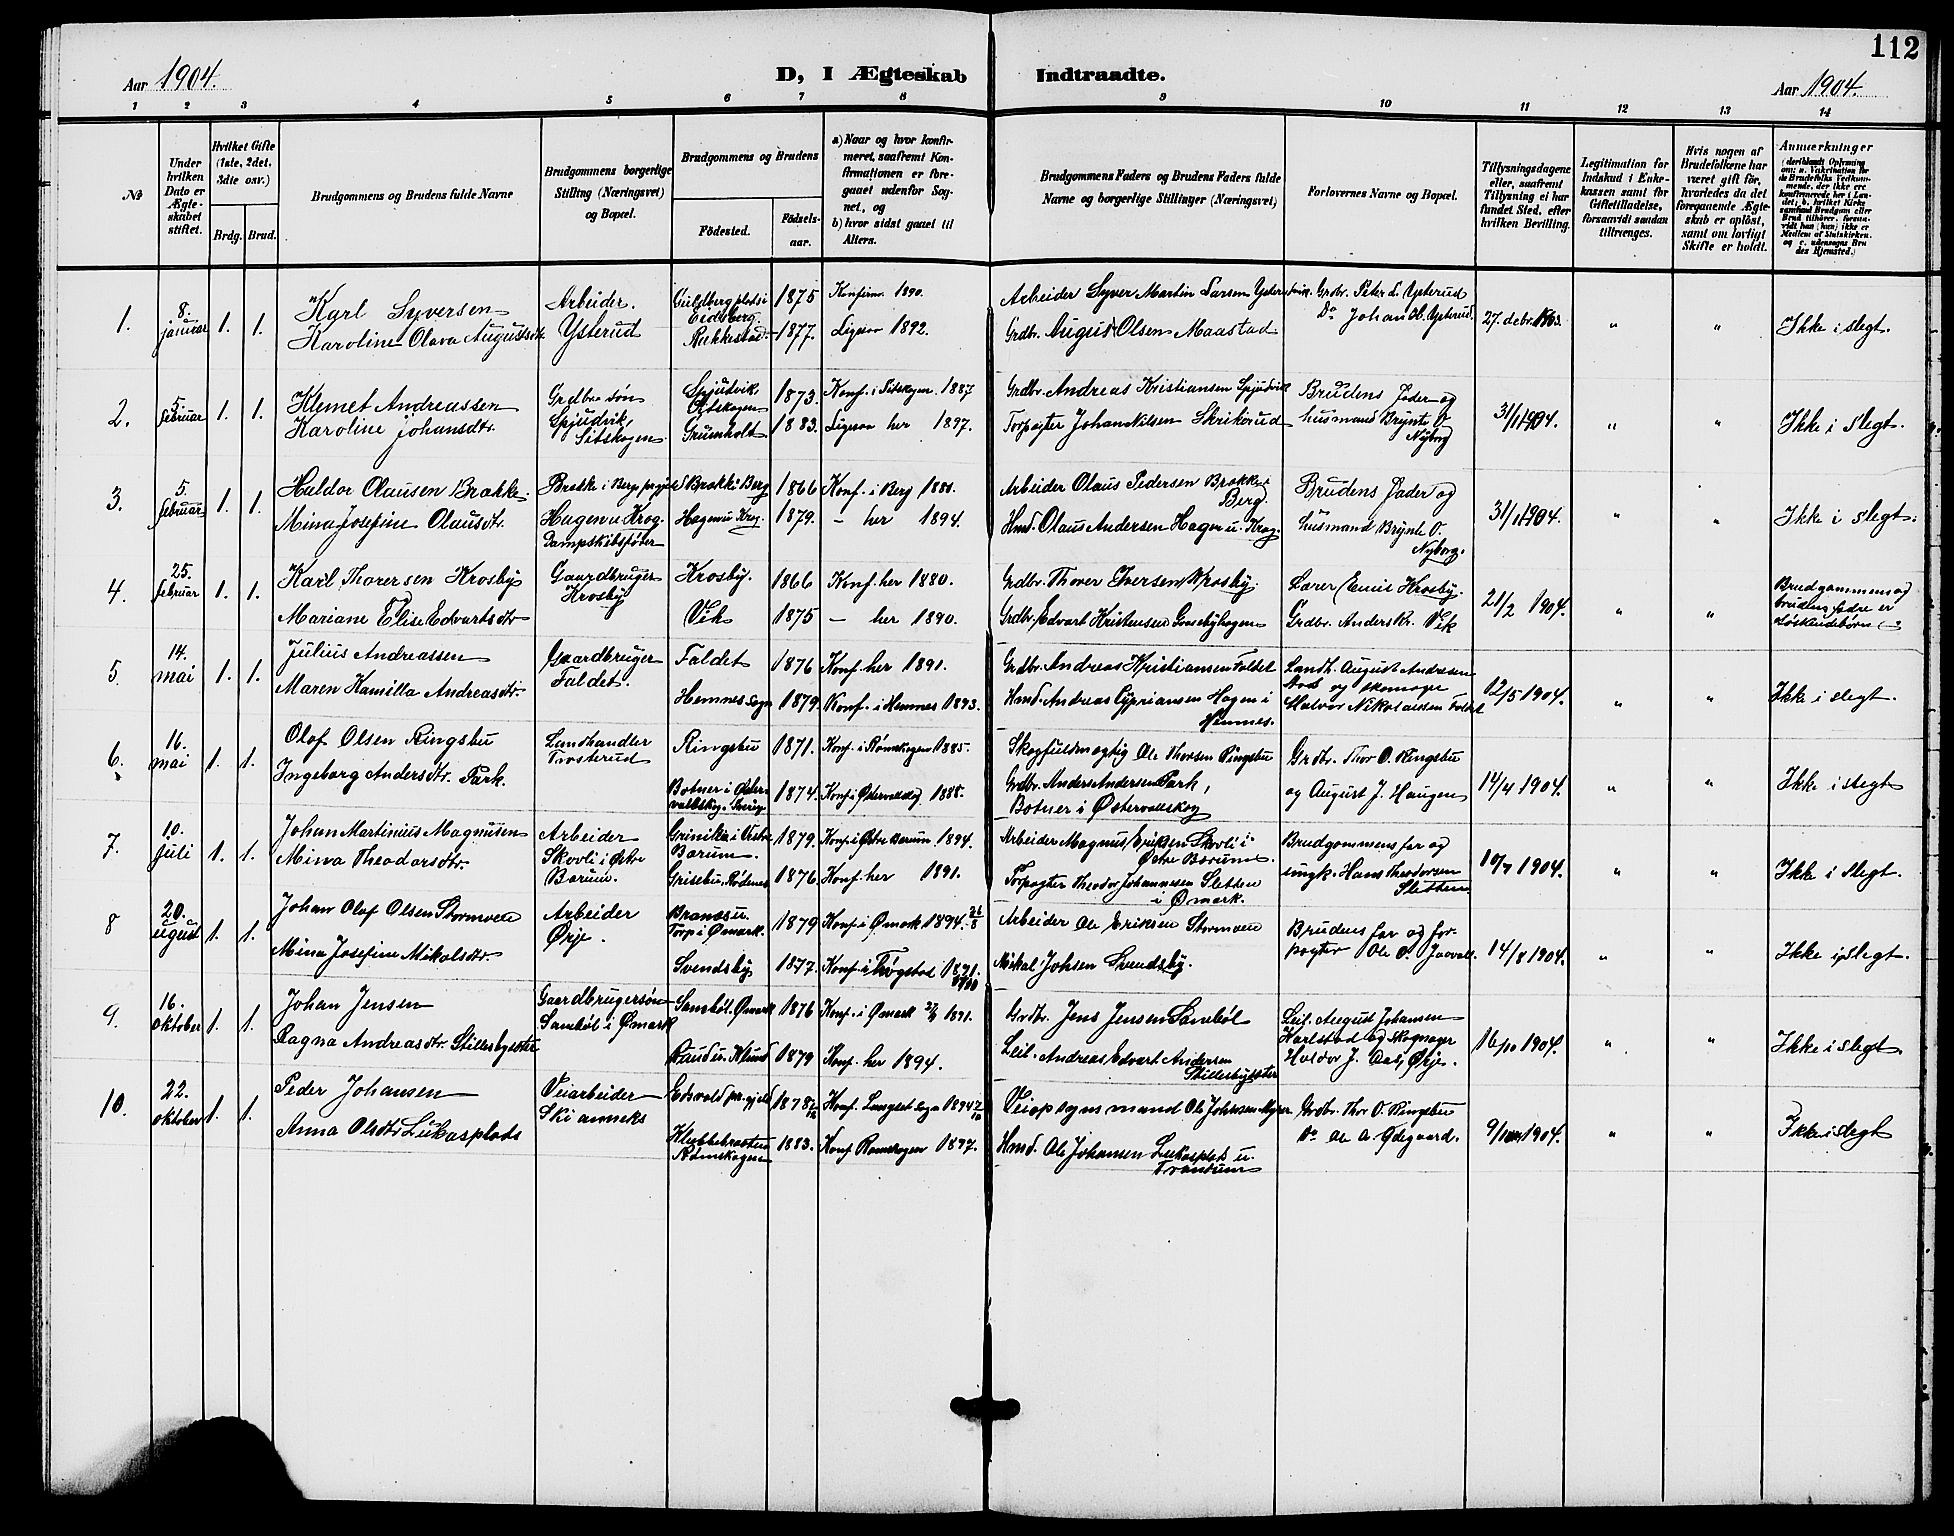 112
Aar 1904.
D, I Ægteskab Indtraadte.
Aar 1904.
1 2 3 4 5 6 7 8 9 10 11 12 13 14
№
Under hvilken Dato er Ægteskabet stiftet.
Hvilket Gifte (1ste, 2det, 3die osv.)
Brdg. Brud.
Brudgommens og Brudens fulde Navne
Brudgommens borgerlige Stilling (Næringsvei) og Bopæl.
Brudgommens og Brudens
Fødested.
Fødselsaar.
a) Naar og hvor konfirmeret, saafremt Konfirmationen er foregaaet udenfor Sognet, og
b) hvor sidst gaaet til Alters.
Brudgommens Faders og Brudens Faders fulde Navne og borgerlige Stillinger (Næringsvei)
Forlovernes Navne og Bopæl.
Tillysningsdagene eller, saafremt Tillysning ei har fundet Sted, efter hvilken Bevilling.
Legitimation for Indskud i Enkekassen samt for Giftetilladelse, forsaavidt saadan tiltrænges.
Hvis nogen af Brudefolkene har været gift før, hvorledes da det foregaaende Ægteskab er opløst, samt om lovligt Skifte er holdt.
Anmærkninger
1. 8. januar 1. 1.
Karl Syversen
Karoline Olava Augustsdtr
Arbeider.
Ysterud
Eidsberg.
Rakkestad
1875
1877.
Konfirm. 1890.
Ligesaa 1892.
Arbeider Syver Martin Larsen
Grdbr. August Olsen Maastad
Grdbr. Peter L. Ysterud
Do Johan Ol. Ysterud.
27. debr. 1903.
" "
Ikke i slegt.
2. 5. februar 1. 1.
Klemet Andreassen
Karoline Johansdtr.
Grdbr. søn
Spjudvik,
Sitskogen
Spjudvik,
Sitskogen
Grumholt
1873
1883.
Konf. i Sitskogen 1887
Ligesaa her 1897.
Grdbr. Andreas Kristiansen Spjudvik
Torpagter Johan Nilsen Skrikerud
Brudens fader og
husmand Brynte O.
Nyborg
31/1 1904.
" "
Ikke i slegt.
3. 5. februar 1. 1.
Haldor Olausen Brække.
Mina Josefine Olausdtr.
Brække i Berg
Hagen u. Krog.
Dampskibsfører
Brække i Berg
Hagen u Krog.
1866
1879.
Konf. i Berg
– her 1894.
Arbeider Olaus Pedersen Brække
Berg
Hmd. Olaus Andersen Hagen u. Krog.
Brudens fader og
husmand Brynte O.
Nyborg.
31/1 1904.
" "
Ikke i slegt.
4. 25. februar 1. 1.
Karl Thorersen Krosby
Mariane Elise Edvartsdtr
Gaardbruger
Krosby
Krosby.
Vik
1866
1875
Konf. her 1880.
– her 1890.
Grdbr. Thorer Iversen Krosby.
Grdbr. Edvart Kristensen
Lærer Emil Krosby.
Grdbr. Anders Kr. Vik
21/2 1904.
" "
Brudgommens og
brudens fædre er
søskendebørn
5. 14. mai 1. 1.
Julius Andreassen
Maren Kamilla Andreasdtr.
Gaardbruger
Faldet.
Faldet
Hemnes sogn
1876
1879.
Konf. her 1891.
Konf. i Hemnes 1893.
Grdbr. Andreas Kristiansen Faldet
Hmd. Andreas Cyprianssen Hagen i
Hemnes.
Landh. August Andresen
og skomager
Halvor Nikolaisen Faldet
12/5 1904.
" "
Ikke i slegt.
6. 16. mai 1. 1.
Olaf Olsen Ringsbu
Ingeborg Andersdtr. Park.
Landhandler
Trosterud
Ringsbu
Botner i Østervalskog. Sverig
1871.
1874.
Konf. i Rømskogen 1885.
Konf. i Østervalskog 1888.
Skogfuldmægtig Ole Thorsen Ringsbu
Grdbr. Anders Andersen Park,
Botner i Østervalskog
Grdbr. Thor O. Ringsbu
og August J. Haugen
14/4 1904.
" "
Ikke i slegt
7. 10. juli 1. 1.
Johan Martinius Magnusen
Mina Theodorsdtr.
Arbeider
Skovli i Østre
Bærum.
Bærum.
Grisebu, Rødenes
1879.
1876.
Konf. i Østre Bærum 1894.
Konf. her 1891.
Arbeider Magnus Eriksen Skovli i
Østre Bærum.
Forpagter Theodor Johannessen Sletten
i Ømark.
Brudgommens far og
ungk. Hans Theodorsen
Sletten
10/7 1904.
" "
Ikke i slegt.
8 20. august 1. 1.
Johan Olaf Olsen Stormoen
Mina Josefine Mikalsdtr.
Arbeider
Ørje.
Torp i Ømark.
Svendsby
1879
1877.
Konf. i Ømark 1894.
Konf. i Trøgstad 1891.
Arbeider Ole Eriksen Stormoen
Mikal Johsen Svendsby.
Brudens far og forpagter Ole O.
14/8 1904.
" "
Ikke i slegt.
9. 16. oktober 1. 1.
Johan Jensen
Ragna Andreasdtr. Stillesbysæter
Gaardbrugersøn
Sambøl i Ømark
Sambøl. Ømark
1876
1879
Konf. i Ømark 1891.
Konf. her 1894.
Grdbr. Jens Jensen Sambøl
Leil. Andreas Edvart Andersen
Stillesbysæter
Leil. August Johansen
Karlstad og skomager
Haldor J. Aas, Ørje.
16/10 1904.
" "
Ikke i slegt.
10. 22. oktober 1. 1.
Peder Johansen
Anna Olsdtr Lukasplads
Veiarbeider
Ski anneks
Eidsvold pr.gjeld
Rømskogen
1878
1883.
Konf. Langset sogn 1894
Konf Rømskogen 1897.
Veiopsynsmand Ole Johnsen
Hmd. Ole Johansen Lukasplads u.
Trandum
Grdbr. Thor O. Ringsbu
Do Ole A. Ødegaard.
9/10 1904.
" "
Ikke i slegt